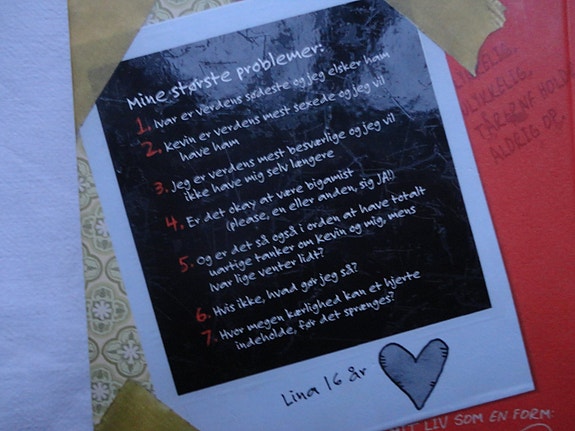 Mine største problemer:
1. Ivar er verdens sødeste og jeg elsker ham
2. Kevin er verdens mest sexede og jeg vil
have ham
3. Jeg er verdens mest besværlige og jeg vil
ikke have mig selv længere
4. Er det okay at være bigamist
(please, en eller anden, sig JA!)
5. Og er det så også i orden at have totalt
uartige tanker om Kevin og mig, mens
Ivar lige venter lidt?
6. Hvis ikke, hvad gør jeg så?
7. Hvor megen kærlighed kan et hjerte
indeholde, før det sprænges?
Lina 16 år
TÅRERNE HOLD
ALDRIG OP.
LIV SOM EN FORM: